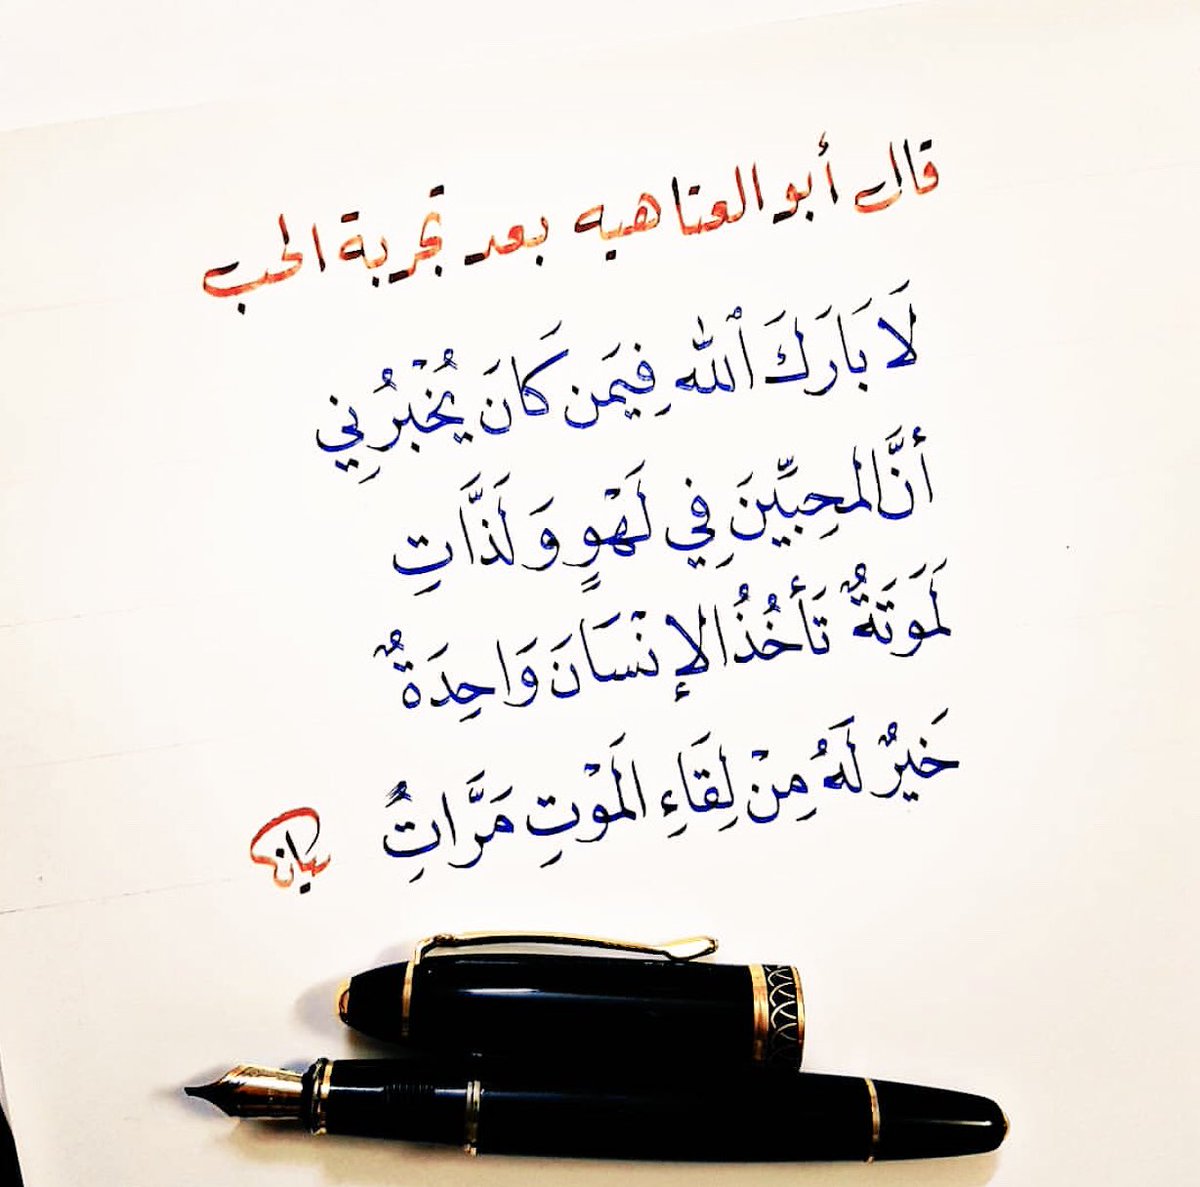 قال أبو العتاهيه بعد تجربة الحب
لَا بَارَكَ ٱللّٰه فِيمَن كَانَ يُخْبرُنِي
أنَّ المحِبِّينَ فِي لَهْوٍ وَلَذَّاتِ
لَمَوتَةٌ تَأخُذُ الإنْسَانَ وَاحِدَةٌ
خَيرٌ لَهُ مِنْ لِقَاءِ الَموْتِ مَرَّاتٌِ